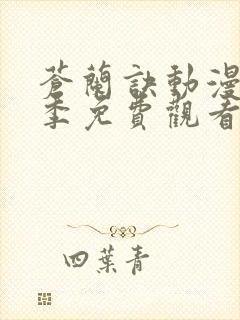 蒼蘭訣動漫
季免費觀看
四葉青